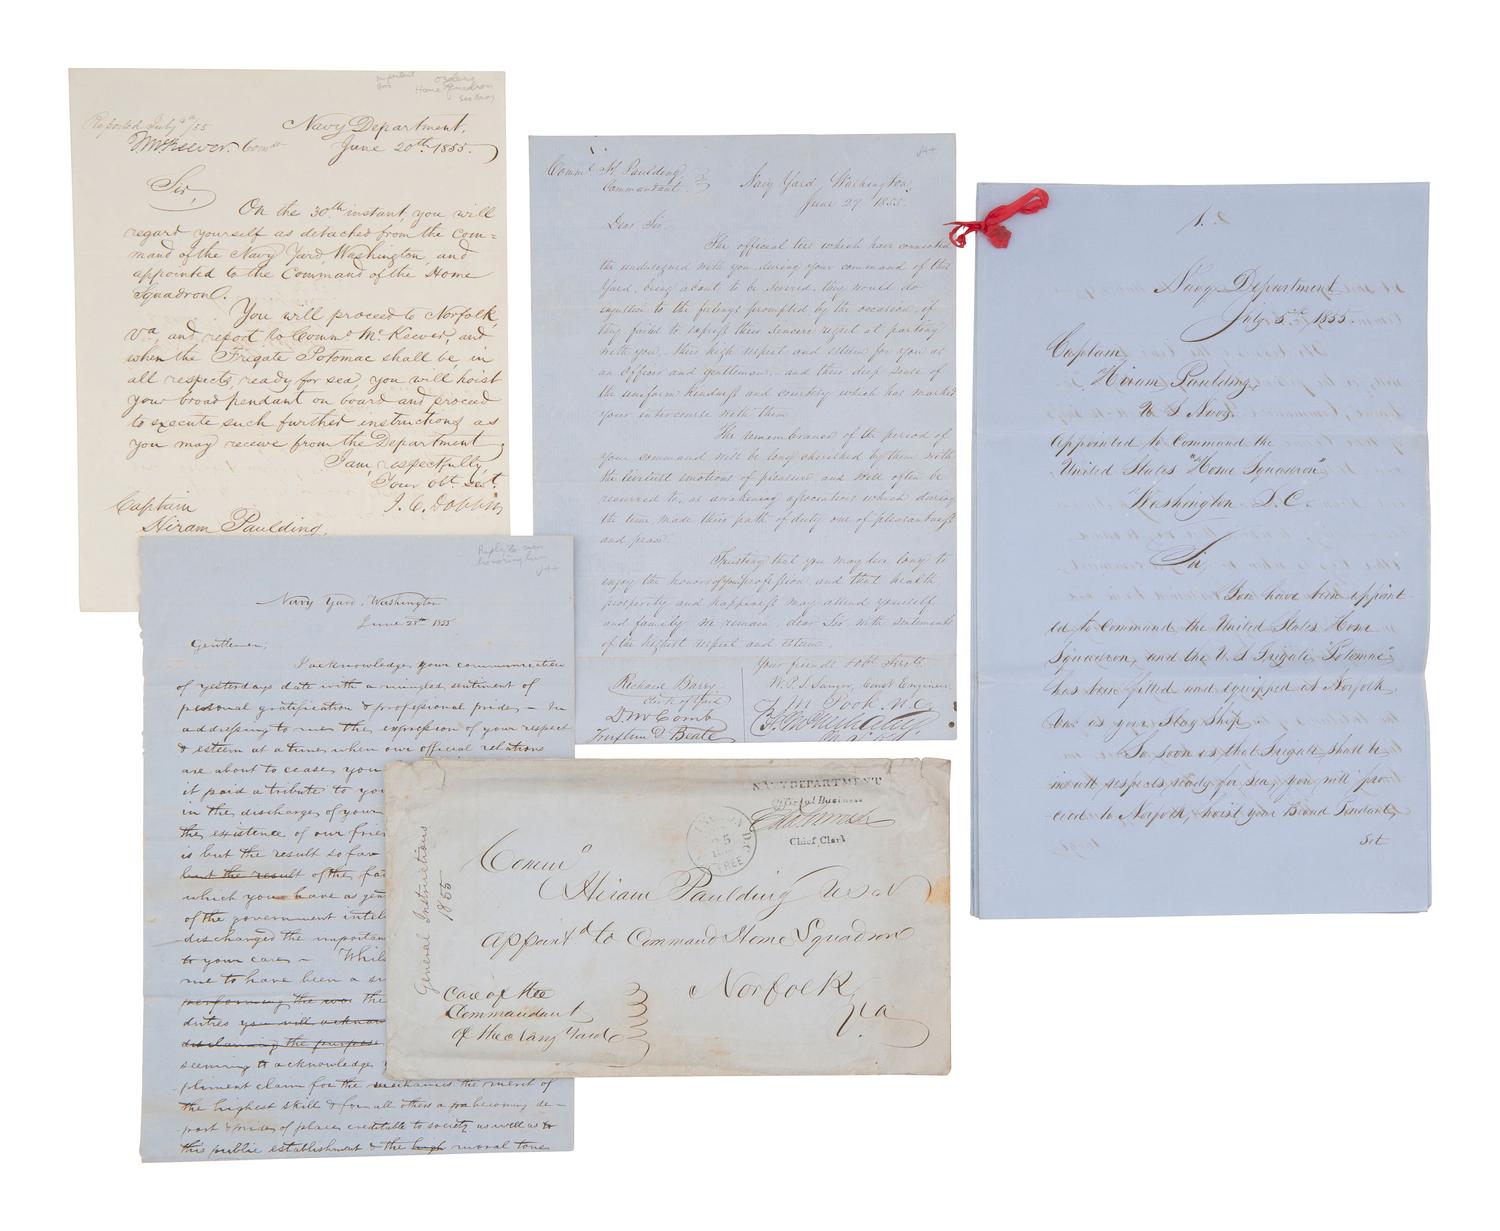 orders
Home Squadron
Reported July 4th /55
Navy Department,
June 20th 1855.
Sir,
On the 30th instant, you will
regard yourself as detached from the Com=
mand of the Navy Yard, Washington, and
appointed to the Command of the Home
Squadron.
You will proceed to Norfolk,
Va, and report to Commo McKeever, and
when the Frigate Potomac shall be, in
all respects, ready for sea, you will hoist
your broad pendant on board and proceed
to execute such further instructions as
you may receive from the Department.
I am, respectfully,
Your obt. sevt.
J. C. Dobbin
Captain
Hiram Paulding,
Commo H. Paulding
Commandant
Navy Yard, Washington,
June 27 1855.
Dear Sir.
The official ties which have connected
the undersigned with you, during your command of this
Yard, being about to be severed, they would do
injustice to the feelings prompted by the occasion, if
they failed to express their sincere regret at parting
with you, their high respect and esteem for you as
an Officer and gentleman, and their deep sense of
the uniform kindness and courtesy which has marked
your intercourse with them.
The remembrance of the period of
your command will be long cherished by them with
the liveliest emotions of pleasure, and will often be
recurred to, as awakening associations which during
the time, made their path of duty one of pleasantness
and peace.
Trusting that you may live long to
enjoy the honors of your profession, and that health,
prosperity and happiness may attend yourself
and family we remain, dear Sir, with sentiments
of the highest respect and esteem,
Your friends & obt. Servts
Richard Barry
Clerk of Yard
W. P. S. Sanger, Const Engineer
Navy Department
July 5th 1855.
Captain
Hiram Paulding,
U S Navy.
Appointed to Command the
United States "Home Squadron"
Washington D.C.
Sir,
You have been appoint-
ed to Command the United States Home
Squadron, and the U. S. Frigate "Potomac"
has been fitted and equipped at Norfolk
as your Flag Ship.
So soon as that Frigate shall be
in all respects ready for sea, you will pro
ceed to Norfolk, hoist your Broad Pendant,
Navy Yard, Washington
June 28th 1855
Gentlemen,
I acknowledge your communication
of yesterdays date with a mingled sentiment of
personal gratification & professional pride - In
addressing to me the expression of your respect
& esteem at a time when our official relations
are about to cease, you
it paid a tribute to you
in the discharge of your
the existence of our frien
is but the result so far
but the result of the fai
which you have as gen
of the government intel
discharged the importan
to your care - Whil
me to have been a
performing the the
duties you will acknow
disclaiming the purpose
seeming to acknowledge
pliment claim for the mechanics the merit of
the highest skill & for all others a becoming de-
port & of places creditable to society as well as to
this public establishment & the high moral tone
NAVY DEPARTMENT
Official Business
Chief Clerk
WASHINGTON D.C.
5
FREE
General Instructions
1855
Commo
Hiram Paulding U S N
Appointd to Command Home Squadron
Norfolk
Va
Care of the
Commandant
of the Navy Yard